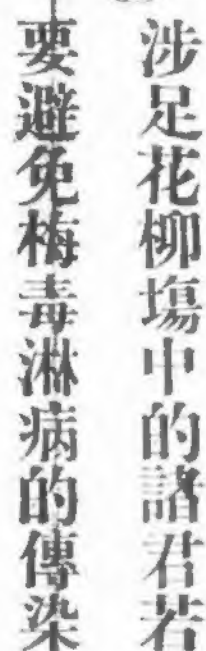 涉足花柳塲中的諸君若
要避免梅毒淋病的傳染